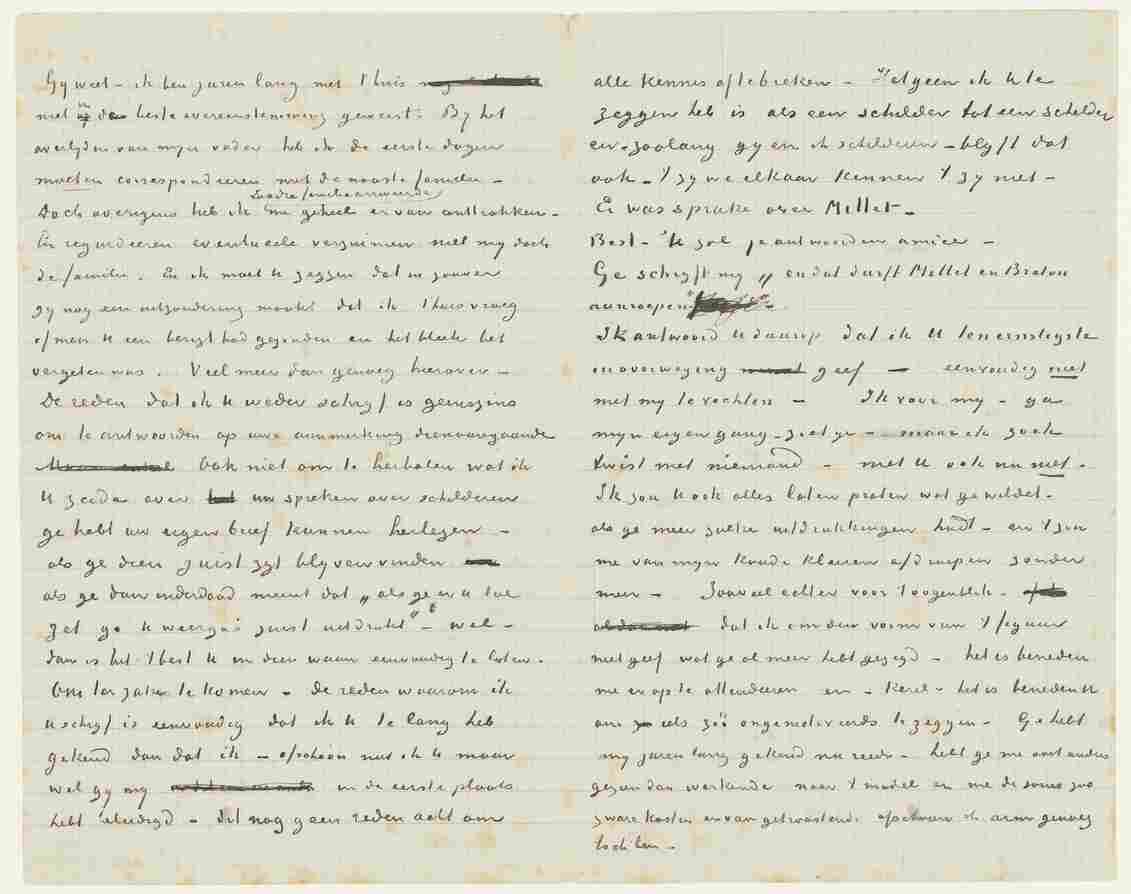 Gy weet – ik ben jaren lang met t'huis
niet in de beste overeenstemming geweest. By het
overlyden van myn vader heb ik de eerste dagen
moeten correspondeeren met de naaste familie –
Zoodra familie arriveerde
Doch overigens heb ik me geheel ervan onttrokken.
En regardeeren eventueele verzuimen niet my doch
de familie. En ik moet U zeggen dat in zoover
gy nog een uitzondering maakt dat ik t'huis vroeg
of men U een berigt had gezonden en het bleek het
vergeten was. Veel meer dan genoeg hierover –
De reden dat ik U weder schryf is geenszins
om te antwoorden op uwe aanmerking dienaangaande
Ook niet om te herhalen wat ik
U zeide over uw spreken over schilderen
ge hebt uw eigen brief kunnen herlezen –
als ge dien juist zyt blyven vinden
als ge dan inderdaad meent dat „als ge er U toe
zet ge U weerga's juist uitdrukt" – wel –
dan is het 't best U in dien waan eenvoudig te laten.
Om ter zake te komen – de reden waarom ik
U schryf is eenvoudig dat ik U te lang heb
gekend dan dat ik – ofschoon niet ik U maar
wel gy my in de eerste plaats
hebt beleedigd – dit nog geen reden acht om
alle kennis af te breken – Hetgeen ik U te
zeggen heb is als een schilder tot een schilder
en – zoolang gy en ik schilderen – blyft dat
ook – 't zy we elkaar kennen 't zy niet –
Er was sprake over Millet –
Best – 'k zal je antwoorden amice –
Ge schryft my „en dat durft Millet en Breton
aanroepen" –
Ik antwoord U daarop dat ik U ten ernstigste
in overweging geef – eenvoudig niet
met my te vechten – Ik voor my – ga
myn eigen gang – ziet ge – maar ik zoek
twist met niemand – met U ook nu niet.
Ik zou U ook alles laten praten wat ge wildet –
als ge meer zulke uitdrukkingen hadt – en 't zou
me van myn koude kleeren afdruipen zonder
meer – Zooveel echter voor 't oogenblik –
dat ik om den vorm van 't figuur
niet geef wat ge al meer hebt gezegd – het is beneden
me er op te attendeeren en – kerel – het is beneden U
om iets zóó ongemotiveerds te zeggen – Ge hebt
my jaren lang gekend nu reeds – hebt ge me ooit anders
gezien dan werkende naar 't model en me de soms zoo
zware kosten ervan getroostende ofschoon ik arm genoeg
toch ben –